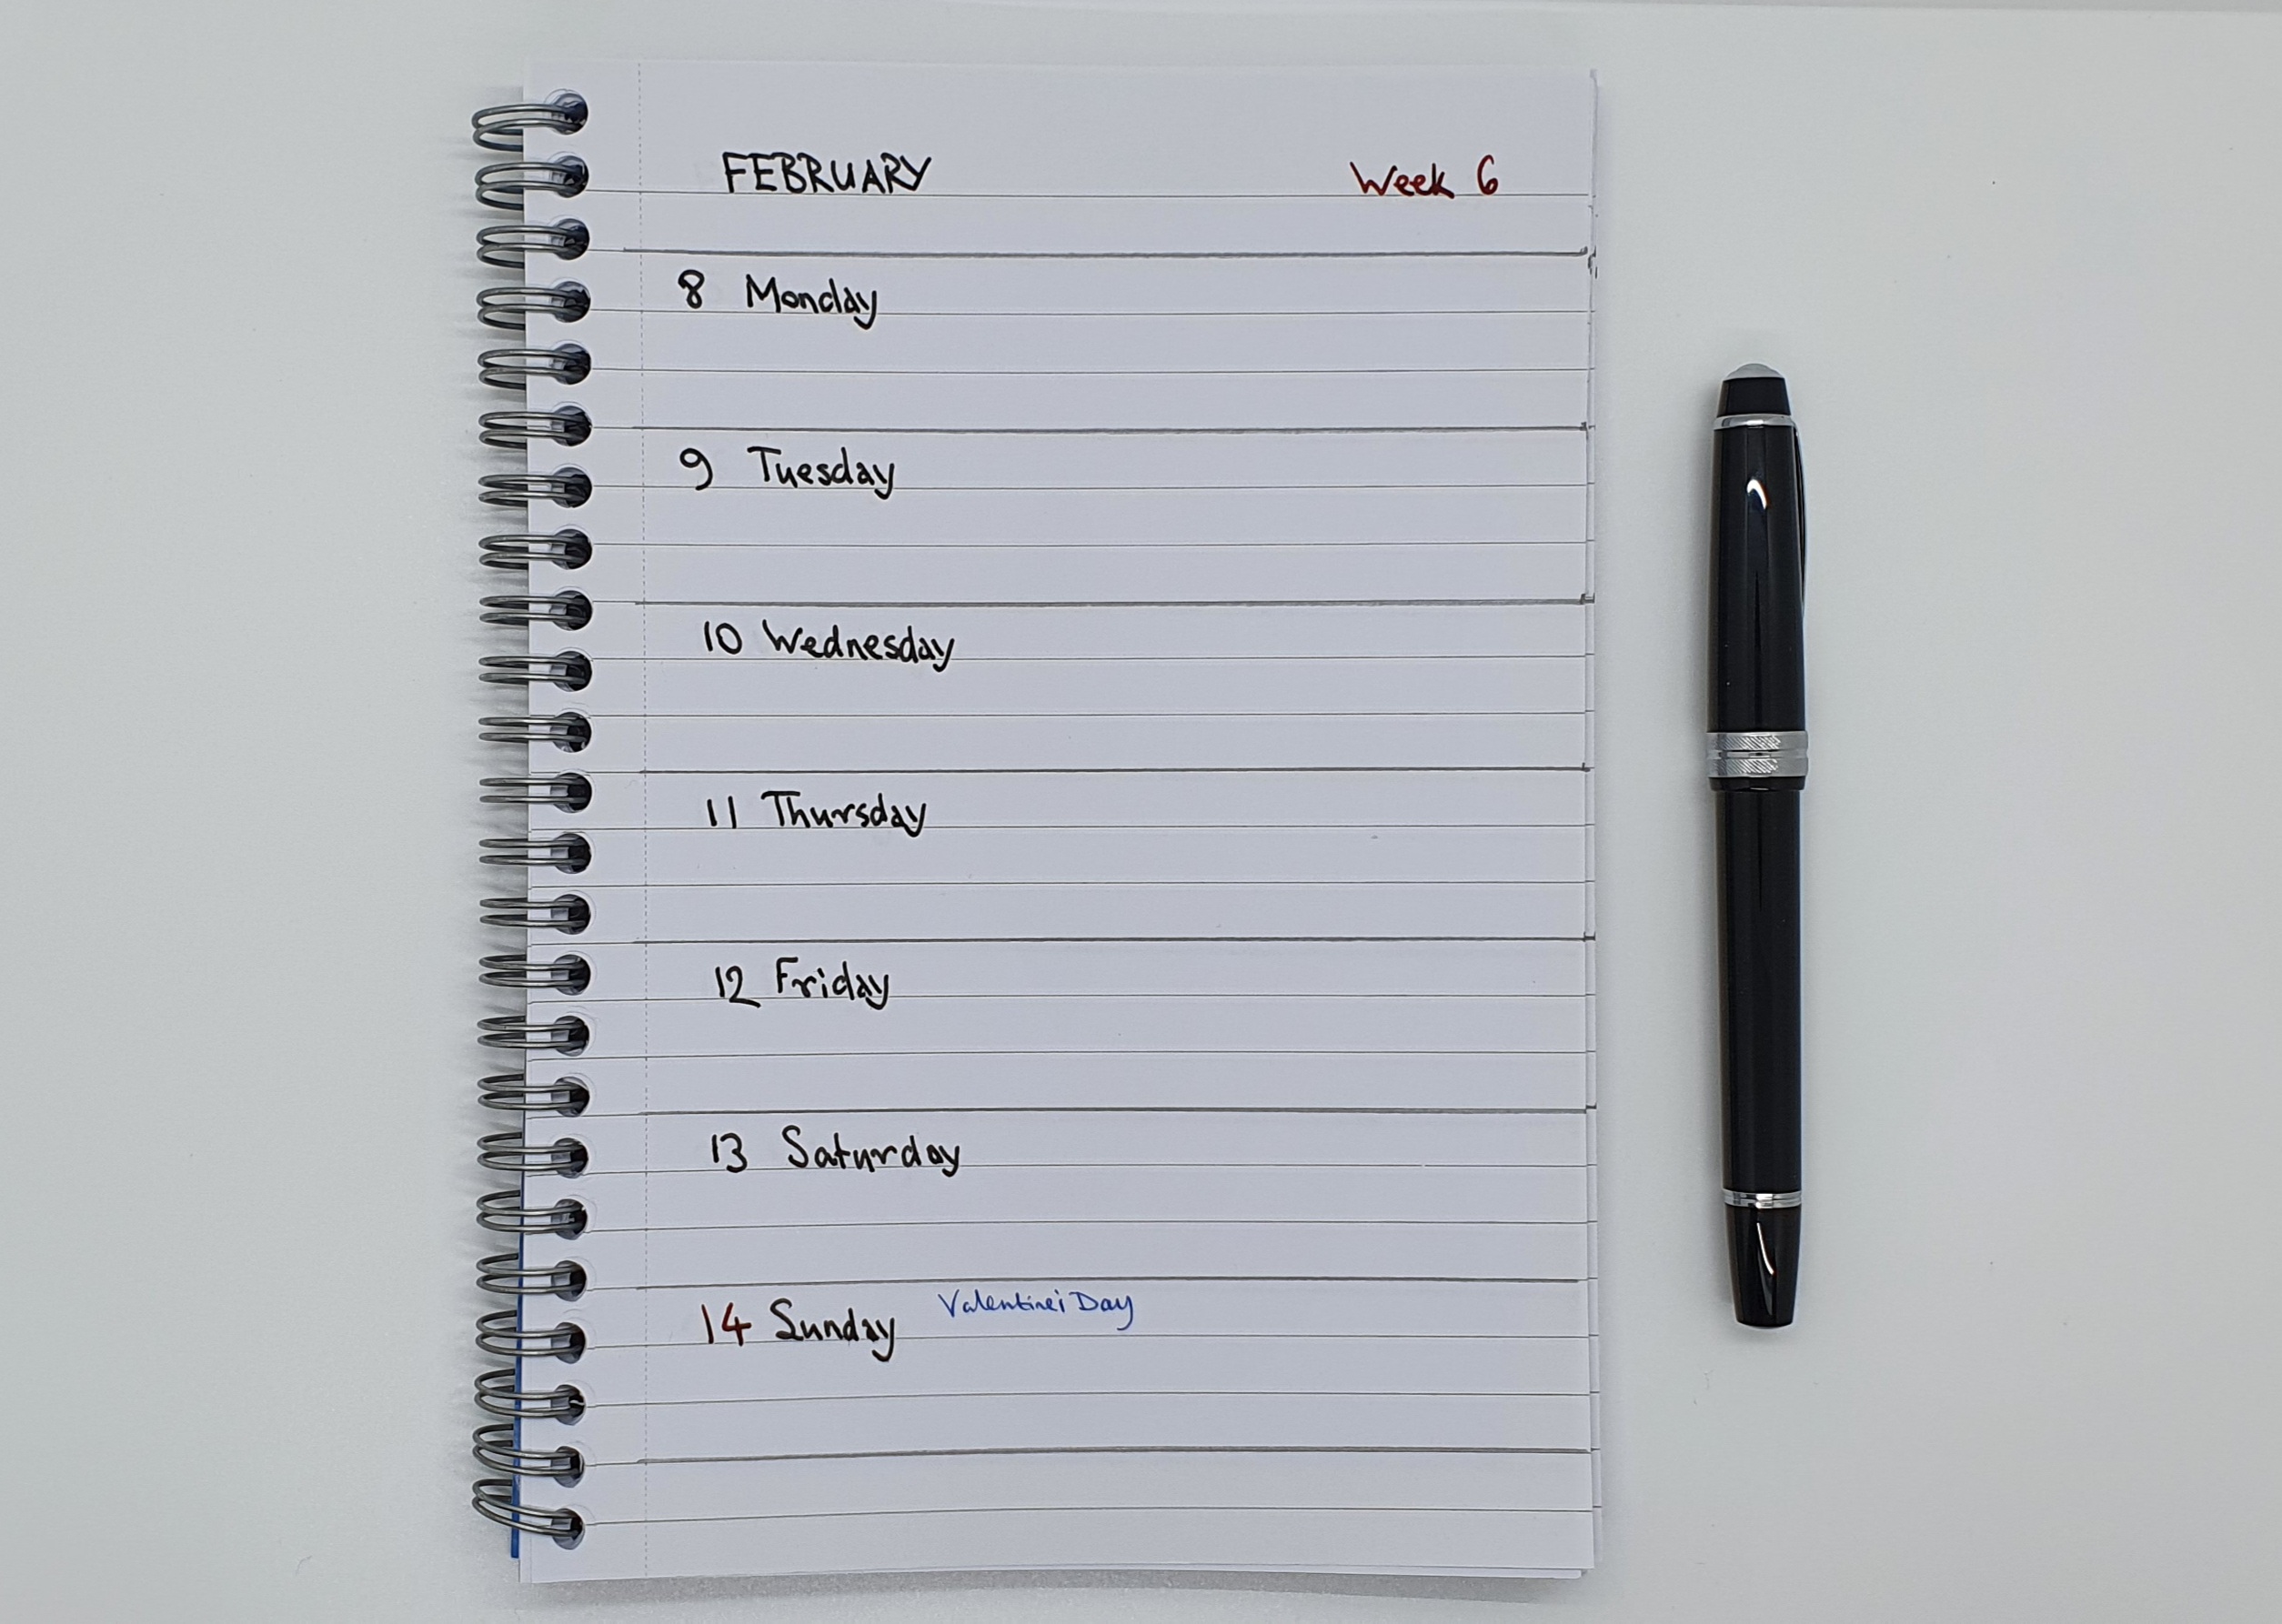 FEBRUARY Week 6
8 Monday
9 Tuesday
10 Wednesday
11 Thursday
12 Friday
13 Saturday
14 Sunday Valentine's Day